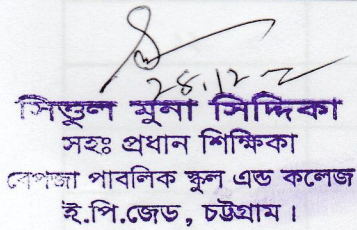 28.12
সিত্তুল মুনা সিদ্দিকা
সহঃ প্রধান শিক্ষিকা
বেপজা পাবলিক স্কুল এন্ড কলেজ
ই.পি.জেড, চট্টগ্রাম।